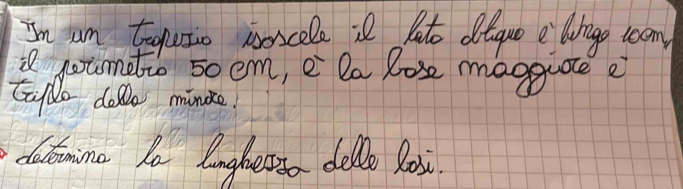 In un trapezio isoscele il lato obliquo è lungo 10cm,
il perimetro 50 cm, e la base maggiore è
tripla della minore.
determina la lunghezza delle basi.